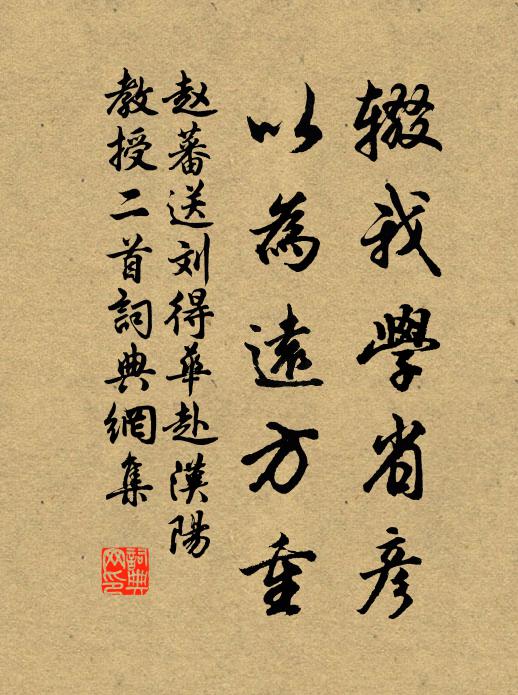 辍我學省彦
以為遠方重
赵蕃送刘得華赴漢陽
教授二首詞典網集
詞典網印